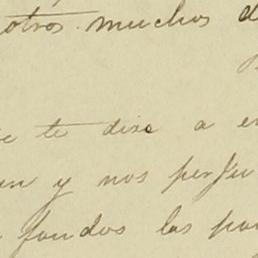 otros muchos d
te dire a e
en y nos perju
fondos las pa